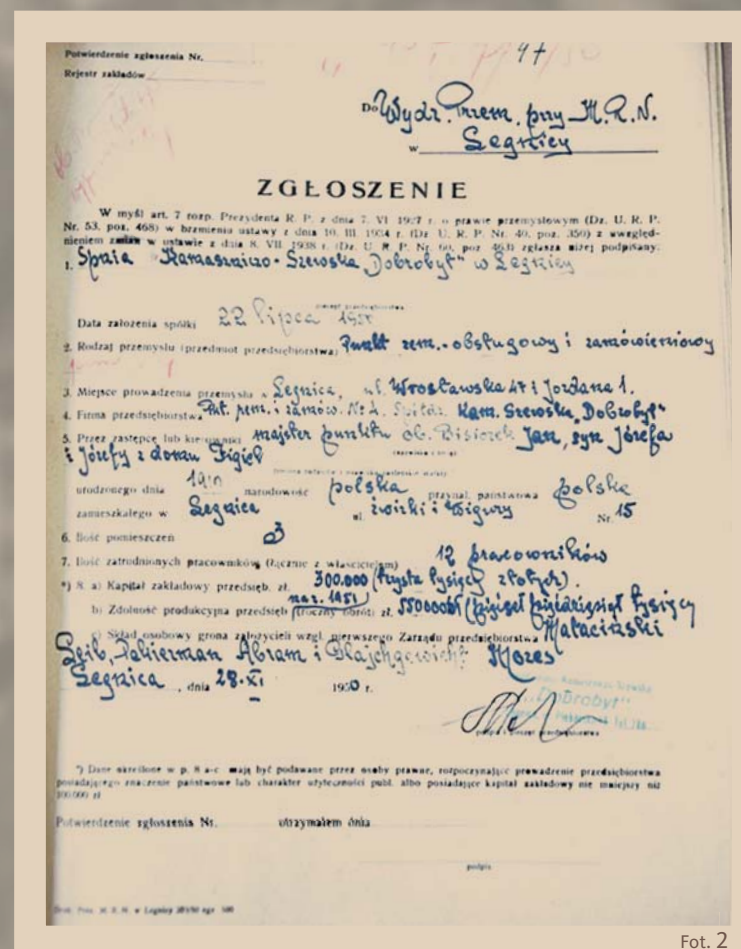 Potwierdzenie zgłoszenia Nr.
47
Rejestr zakładów
Do Wydz. Przem. przy M.R.N.
w Legnicy
ZGŁOSZENIE
W myśl art. 7 rozp. Prezydenta R. P. z dnia 7. VI 1927 r. o prawie przemysłowym (Dz. U. R. P.
Nr. 53, poz. 468) w brzmieniu ustawy z dnia 10. III. 1934 r. (Dz. U. R. P. Nr. 40, poz. 350) z uwzględ-
nieniem zmian w ustawie z dnia 8. VII. 1938 r. (Dz. U. R. P. Nr. 60, poz. 463) zgłasza niżej podpisany:
1. Spnia Kamaszniczo-Szewska "Dobrobyt" w Legnicy
Data założenia spółki 22 lipca 1950
2. Rodzaj przemysłu (przedmiot przedsiębiorstwa) Punkt rem.-obsługowy i zamówieniowy
3. Miejsce prowadzenia przemysłu Legnica, ul. Wrocławska 47 i Jordana 1.
4. Firma przedsiębiorstwa Pkt. rem. i zamów. No 4. Kam. Szewska "Dobrobyt"
5. Przez zastępcę lub kierownika majster punktu ob. Bisiorek Jan, syn Józefa
i Józefy z domu Figiel
urodzonego dnia narodowość polska przynal. państwowa polska
zamieszkałego w Legnica ul. Żwirki i Wigury Nr. 15
6. Ilość pomieszczeń 3
7. Ilość zatrudnionych pracowników (łącznie z właścicielem) 12 pracowników
*) 8. a) Kapitał zakładowy przedsięb. zł. 300.000 (trzysta tysięcy złotych).
na r. 1951
b) Zdolność produkcyjna przedsięb (roczny obrót) zł. (pięćset pięćdziesiąt tysięcy
c) Skład osobowy grona założycieli wzgl. pierwszego Zarządu przedsiębiorstwa
Lejb, Abram i Mozes
Legnica, dnia 28.XI 1950 r.
"Dobrobyt"
podpis i pieczęć przedsiębiorstwa
*) Dane określone w p. 8 a-c mają być podawane przez osoby prawne, rozpoczynające prowadzenie przedsiębiorstwa
posiadającego znaczenie państwowe lub charakter użyteczności publ. albo posiadające kapitał zakładowy nie mniejszy niż
100.000 zł
Potwierdzenie zgłoszenia Nr. otrzymałem dnia
podpis
M. R. N. w Legnicy
Fot. 2